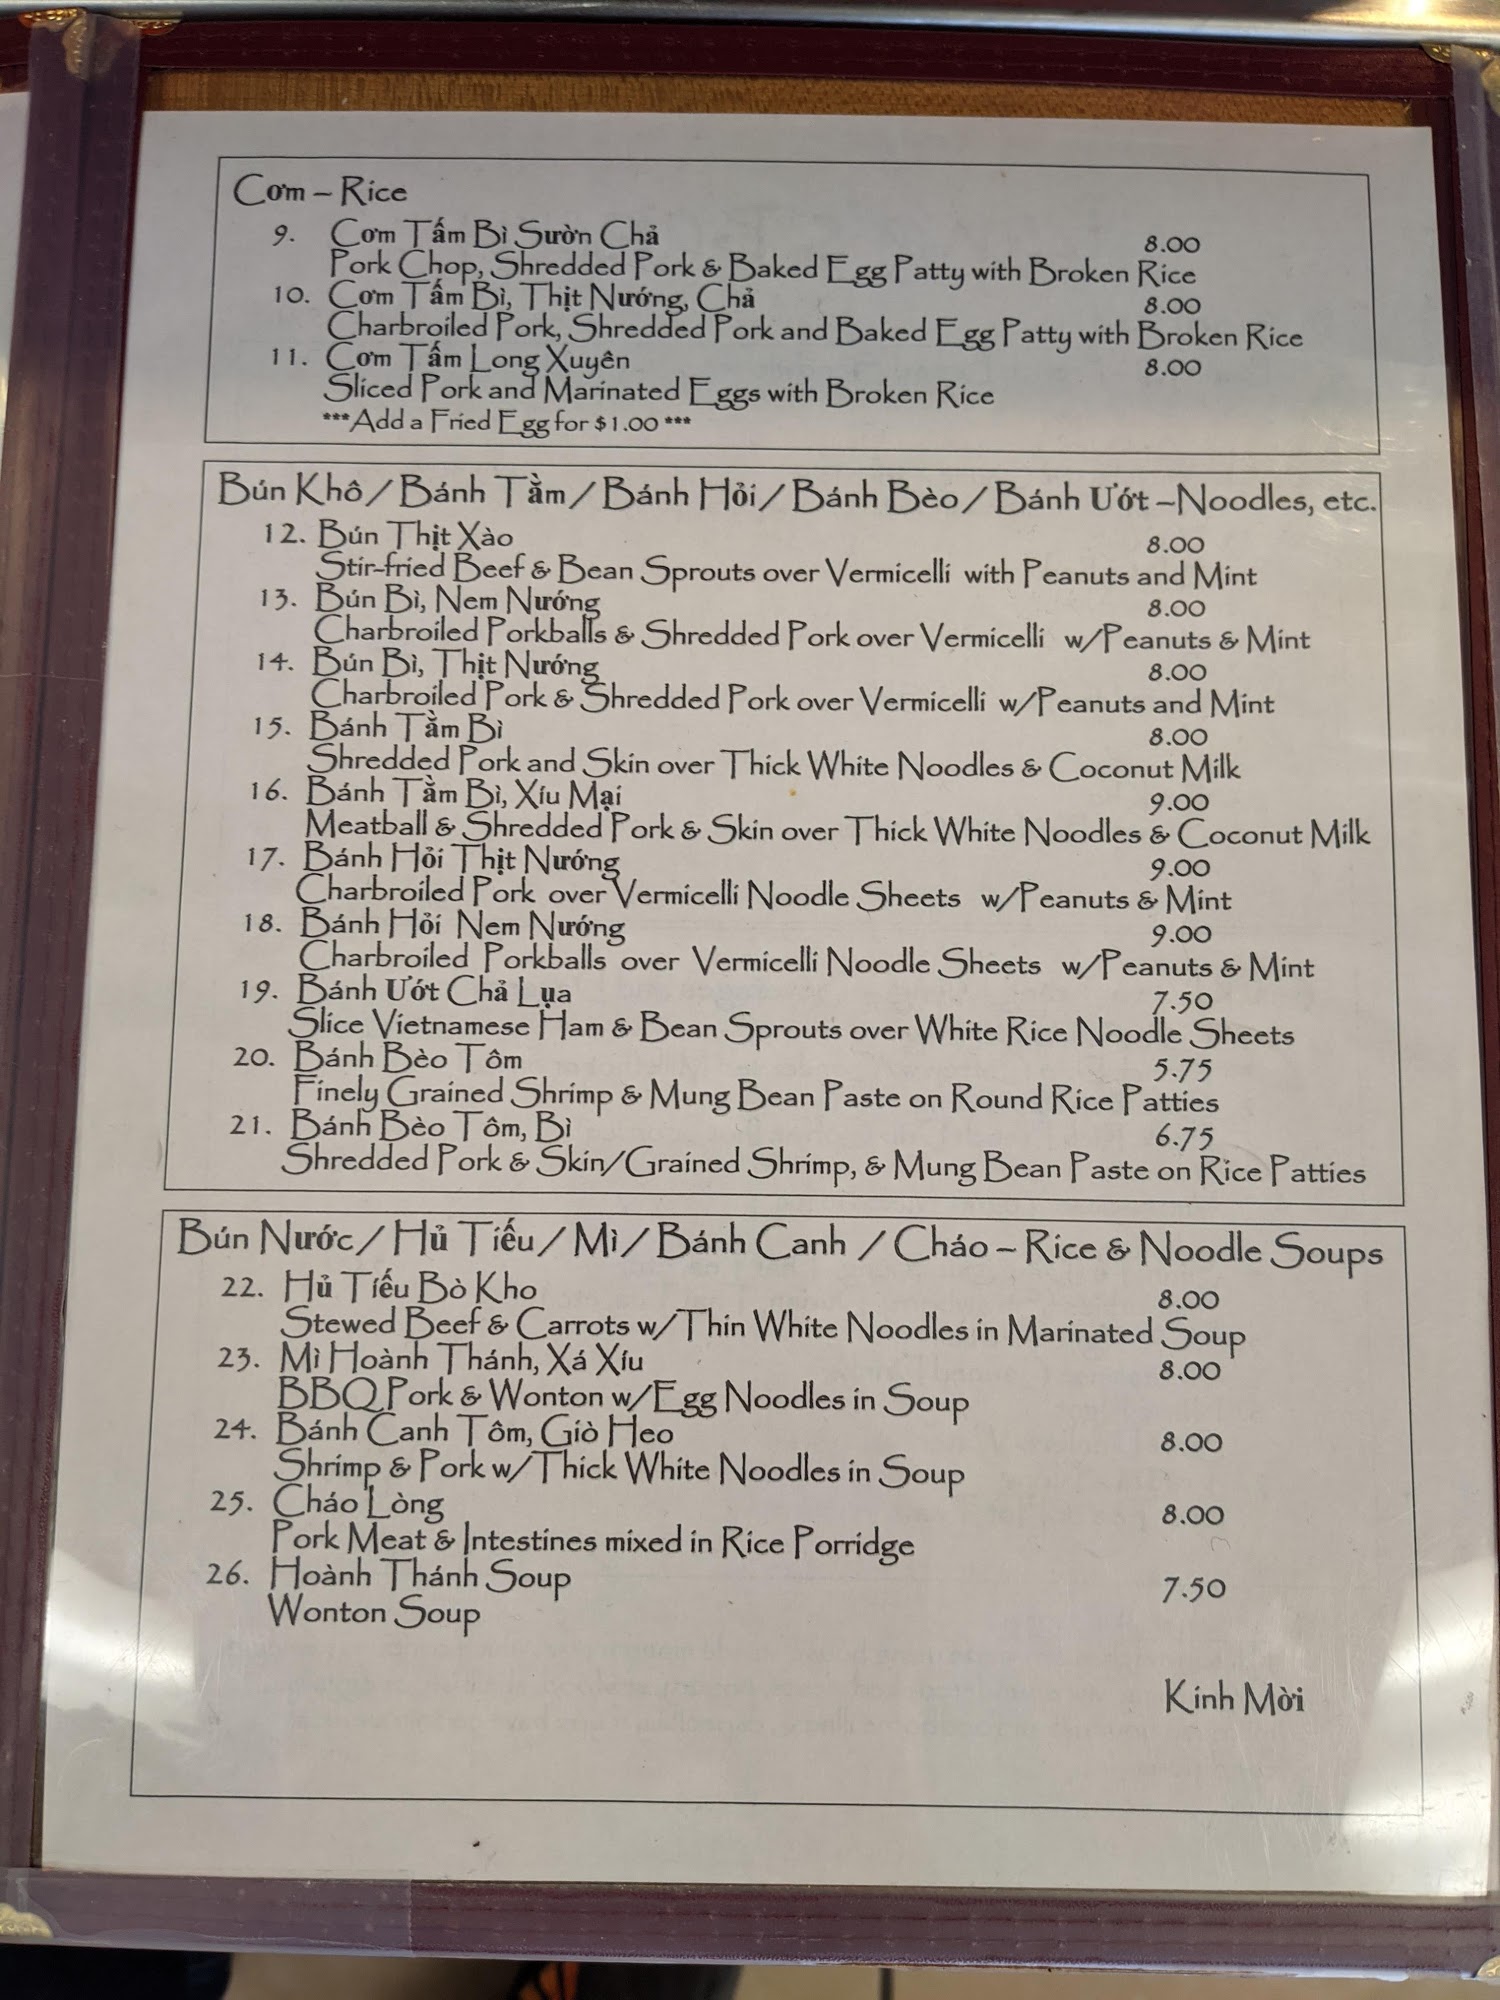 Cơm – Rice
9. Cơm Tấm Bì Sườn Chả 8.00
Pork Chop, Shredded Pork & Baked Egg Patty with Broken Rice
10. Cơm Tấm Bì, Thịt Nướng, Chả 8.00
Charbroiled Pork, Shredded Pork and Baked Egg Patty with Broken Rice
11. Cơm Tấm Long Xuyên 8.00
Sliced Pork and Marinated Eggs with Broken Rice
***Add a Fried Egg for $1.00 ***
Bún Khô / Bánh Tằm / Bánh Hỏi / Bánh Bèo / Bánh Ướt –Noodles, etc.
12. Bún Thịt Xào 8.00
Stir-fried Beef & Bean Sprouts over Vermicelli with Peanuts and Mint
13. Bún Bì, Nem Nướng 8.00
Charbroiled Porkballs & Shredded Pork over Vermicelli w/Peanuts & Mint
14. Bún Bì, Thịt Nướng 8.00
Charbroiled Pork & Shredded Pork over Vermicelli w/Peanuts and Mint
15. Bánh Tằm Bì 8.00
Shredded Pork and Skin over Thick White Noodles & Coconut Milk
16. Bánh Tằm Bì, Xíu Mại 9.00
Meatball & Shredded Pork & Skin over Thick White Noodles & Coconut Milk
17. Bánh Hỏi Thịt Nướng 9.00
Charbroiled Pork over Vermicelli Noodle Sheets w/Peanuts & Mint
18. Bánh Hỏi Nem Nướng 9.00
Charbroiled Porkballs over Vermicelli Noodle Sheets w/Peanuts & Mint
19. Bánh Ướt Chả Lụa 7.50
Slice Vietnamese Ham & Bean Sprouts over White Rice Noodle Sheets
20. Bánh Bèo Tôm 5.75
Finely Grained Shrimp & Mung Bean Paste on Round Rice Patties
21. Bánh Bèo Tôm, Bì 6.75
Shredded Pork & Skin/Grained Shrimp, & Mung Bean Paste on Rice Patties
Bún Nước / Hủ Tiếu / Mì / Bánh Canh / Cháo – Rice & Noodle Soups
22. Hủ Tiếu Bò Kho 8.00
Stewed Beef & Carrots w/Thin White Noodles in Marinated Soup
23. Mì Hoành Thánh, Xá Xíu 8.00
BBQ Pork & Wonton w/Egg Noodles in Soup
24. Bánh Canh Tôm, Giò Heo 8.00
Shrimp & Pork w/Thick White Noodles in Soup
25. Cháo Lòng 8.00
Pork Meat & Intestines mixed in Rice Porridge
26. Hoành Thánh Soup 7.50
Wonton Soup
Kính Mời